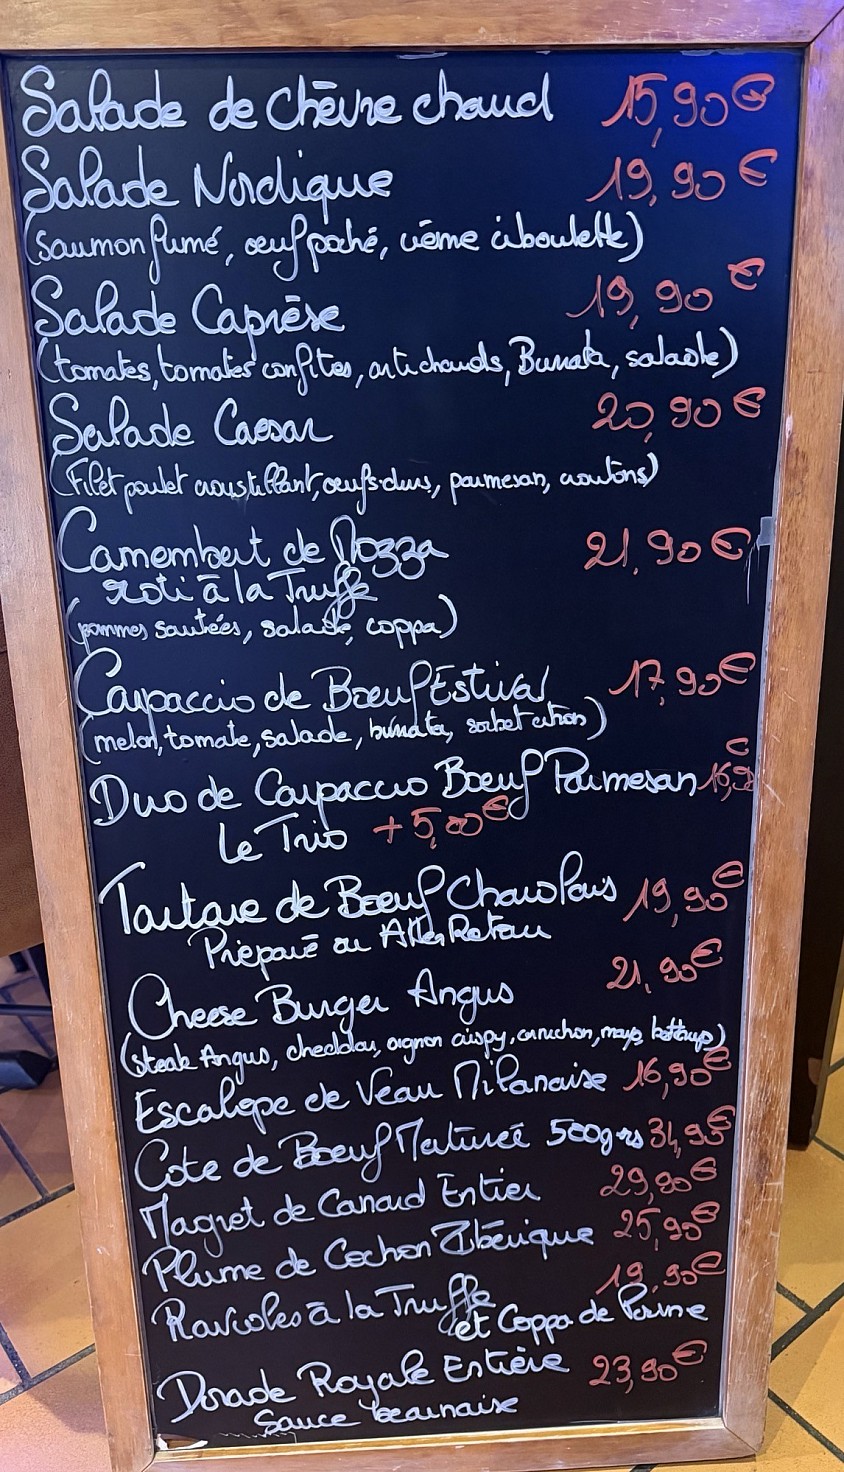 Salade de chèvre chaud 15,90€
Salade Nordique 19,90€
(Saumon fumé, œuf poché, crème ciboulette)
Salade Caprèse 19,90€
(tomates, tomates confites, artichauds, Burrata, salade)
Salade Caesar 20,90€
(Filet poulet croustillant, œufs durs, parmesan, croutons)
Camembert de Mozza 21,90€
roti à la Truffe
(pommes sautées, salade, coppa)
Carpaccio de Bœuf Estival 17,90€
(melon, tomate, salade, burrata, sorbet citron)
Duo de Carpaccio Boeuf Parmesan 16,90€
Le Trio +5,00€
Tartare de Bœuf Charolais 19,90€
Préparé ou Aller Retour
Cheese Burger Angus 21,90€
(Steak Angus, cheddar, oignon crispy, cornichon, mayo, ketchup)
Escalope de Veau Milanaise 16,90€
Cote de Boeuf Maturée 500grs 34,95€
Magret de Canard Entier 29,90€
Plume de Cochon Ibérique 25,90€
Ravioles à la Truffe 19,90€
et Coppa de Parme
Dorade Royale Entière 23,90€
Sauce bearnaise